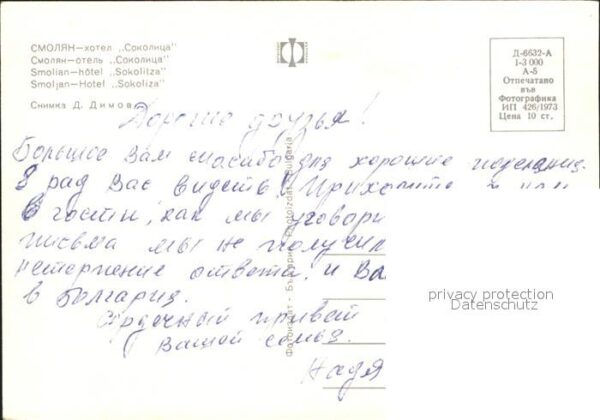 СМОЛЯН—хотел „Соколица"
Смолян—отель „Соколица"
Smolian—hôtel „Sokolitza"
Smoljan—Hotel „Sokoliza"
Снимка Д. Димов
Д-6632-А
1-3 000
А-5
Отпечатано
във
Фотографика
ИП 426/1973
Цена 10 ст.
Дорогие друзья!
Большое Вам спасибо для хорошие
Я рад Вас видеть!
в гости, как мы уговори
письма мы не получил
нетерпение ответа и Ва
в Болгария.
Сердечный привет
Вашой семья.
Надя
privacy protection
Datenschutz